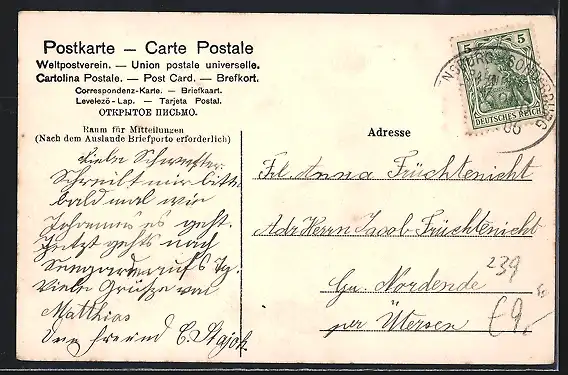 Postkarte — Carte Postale
Weltpostverein. — Union postale universelle.
Cartolina Postale. — Post Card. — Brefkort.
Correspondenz-Karte. — Briefkaart.
Levelezö-Lap. — Tarjeta Postal.
ОТКРЫТОЕ ПИСЬМО.
Raum für Mitteilungen
(Nach dem Auslande Briefporto erforderlich)
Liebe Schwester.
Schreibt mir bitte
bald mal wie
Johannes es geht.
Jetzt gehts nach
auf 8 Tg.
Viele Grüsse von
Matthias
5 5
DEUTSCHES REICH
SONDERBURG
Adresse
Frl Anna Früchtenicht
Adr Herrn Jacob Früchtenicht
Gr. Nordende
per Ütersen
239
€9,-